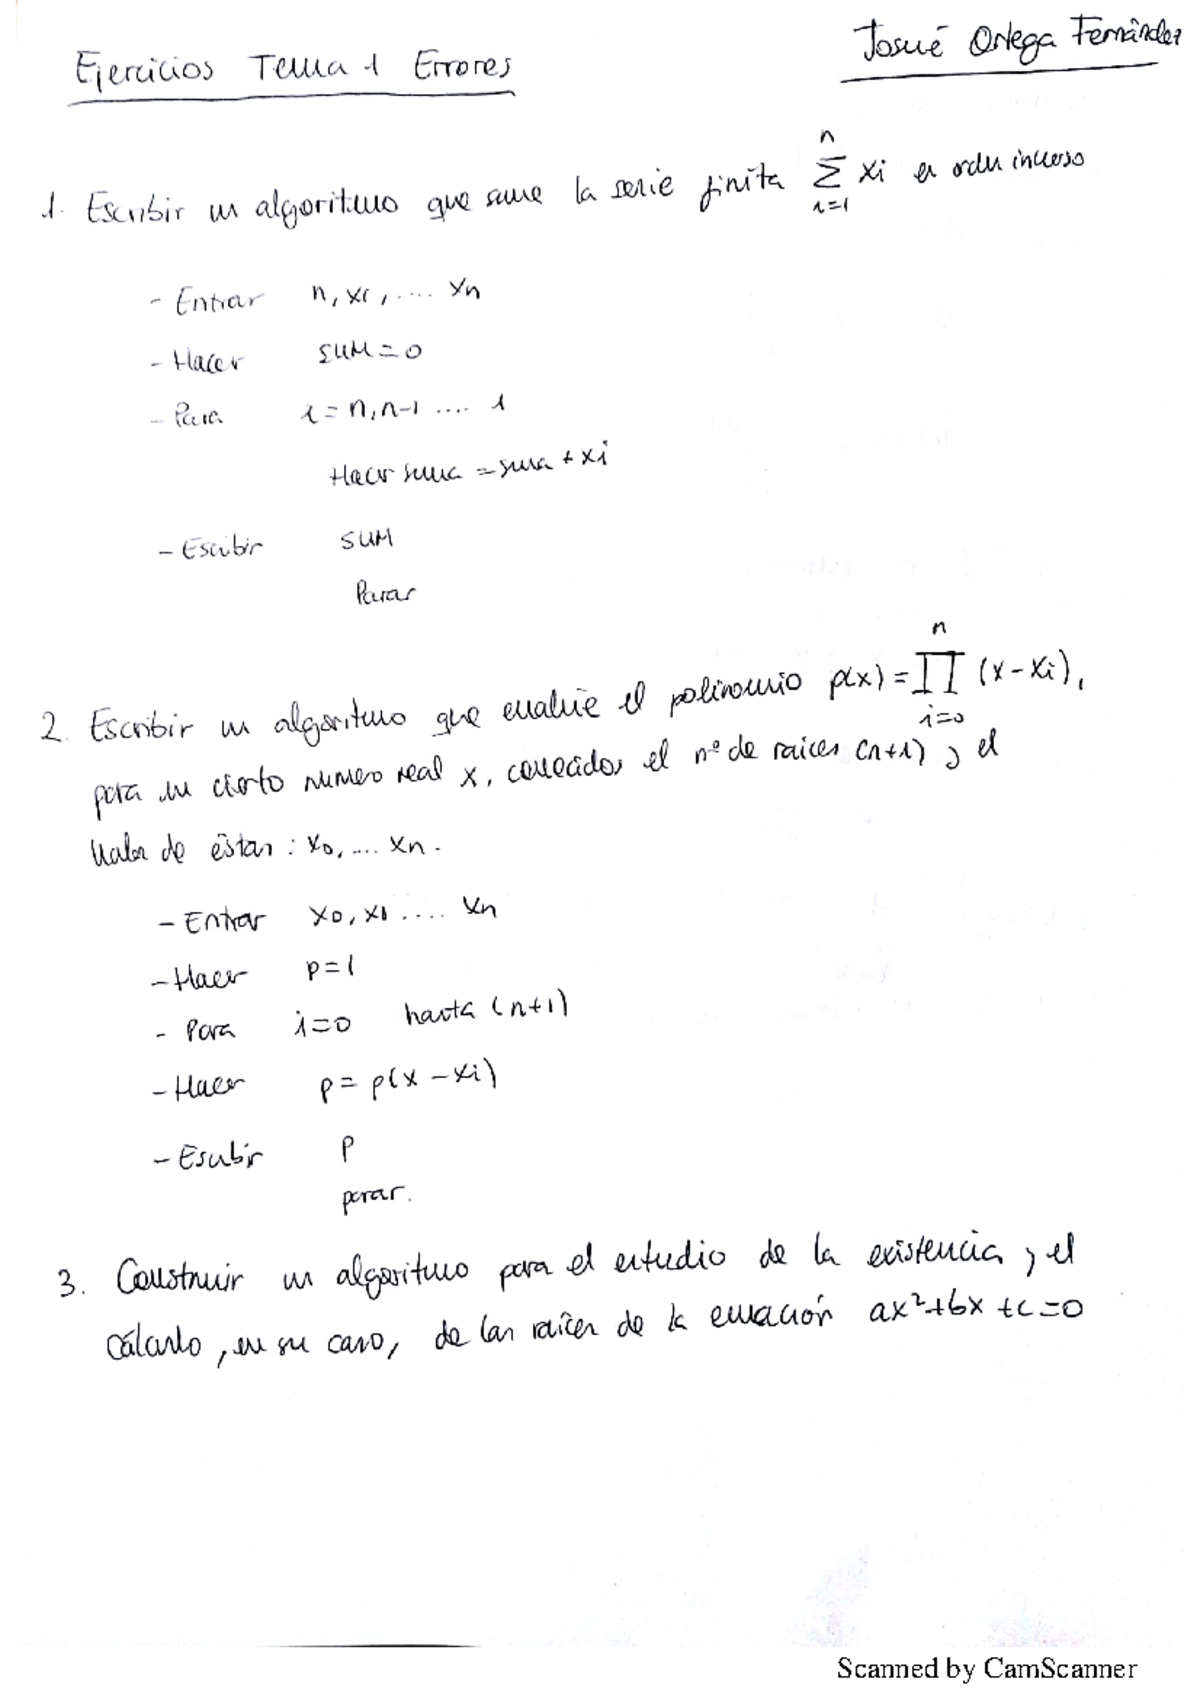 Josué Ortega Fernández
Ejercicios Tema 1 Errores
1. Escribir un algoritmo que sume la serie finita \sum_{i=1}^{n} xi en orden inverso
- Entrar n, x1, .... xn
- Hacer SUM = 0
- Para i = n, n-1 .... 1
Hacer suma = suma + xi
- Escribir SUM
Parar
2. Escribir un algoritmo que evalúe el polinomio p(x) = \prod_{i=0}^{n} (x - xi),
para un cierto numero real x, conocidos el nº de raices (n+1) y el
valor de éstas : x0, .... xn.
- Entrar x0, x1 .... xn
- Hacer p = 1
- Para i = 0 hasta (n+1)
- Hacer p = p(x - xi)
- Escribir p
parar.
3. Construir un algoritmo para el estudio de la existencia, y el
cálculo, en su caso, de las raíces de la ecuación ax²+bx+c=0
Scanned by CamScanner